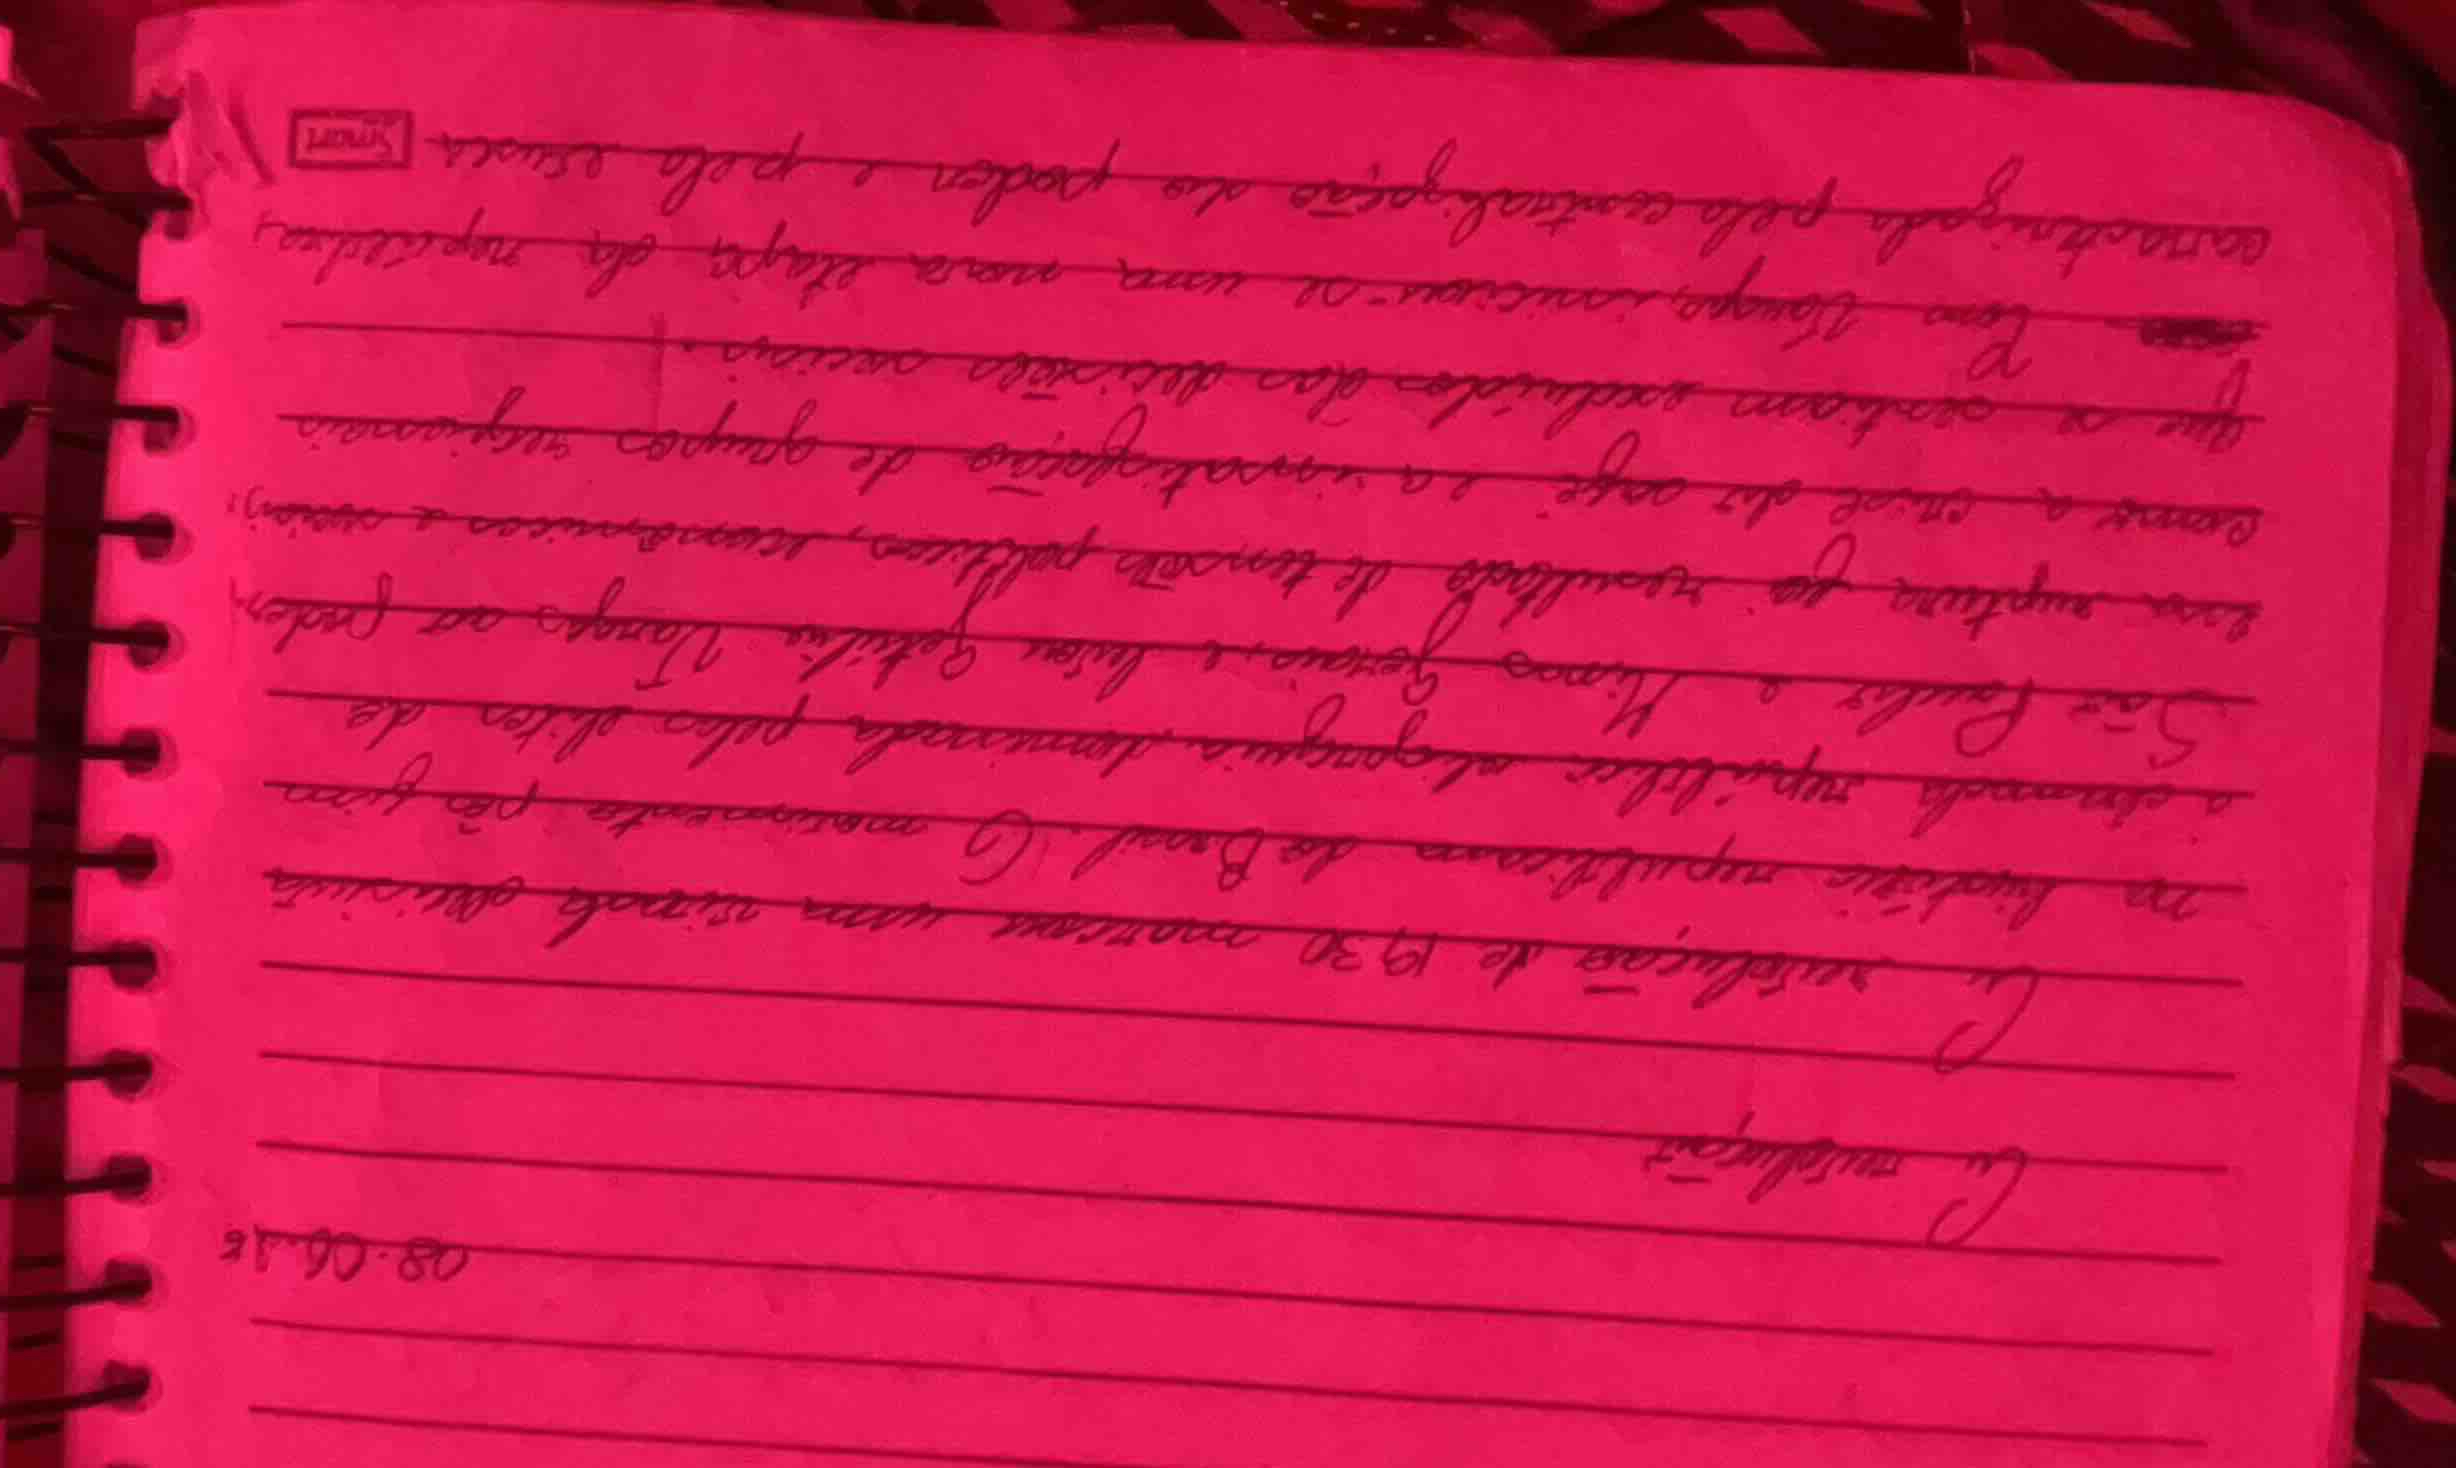 08.06.26
A revolução
A revolução de 1930 marcou uma virada decisiva
na história republicana do Brasil. O movimento pôs fim
a chamada república oligarquia, dominada pelas elites de
São Paulo e Minas Gerais, e levou Getúlio Vargas ao poder.
essa ruptura foi resultado de tensões políticas, econômicas e sociais,
como a crise do café e a insatisfação de grupos regionais
que se sentiam excluídos das decisões sociais.
Com Vargas, iniciou-se uma nova etapa da república,
caracterizada pela centralização do poder e pela
Smart